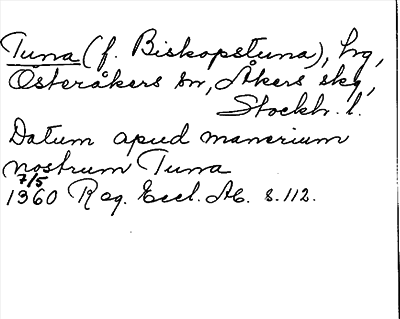 Tuna (f. Biskopstuna), hrg,
Österåkers sn, Åkers skg,
Stockh. l.
Datum apud manerium
nostrum Tuna
7/5
1360 Reg. Eccl. Ab. s. 112.